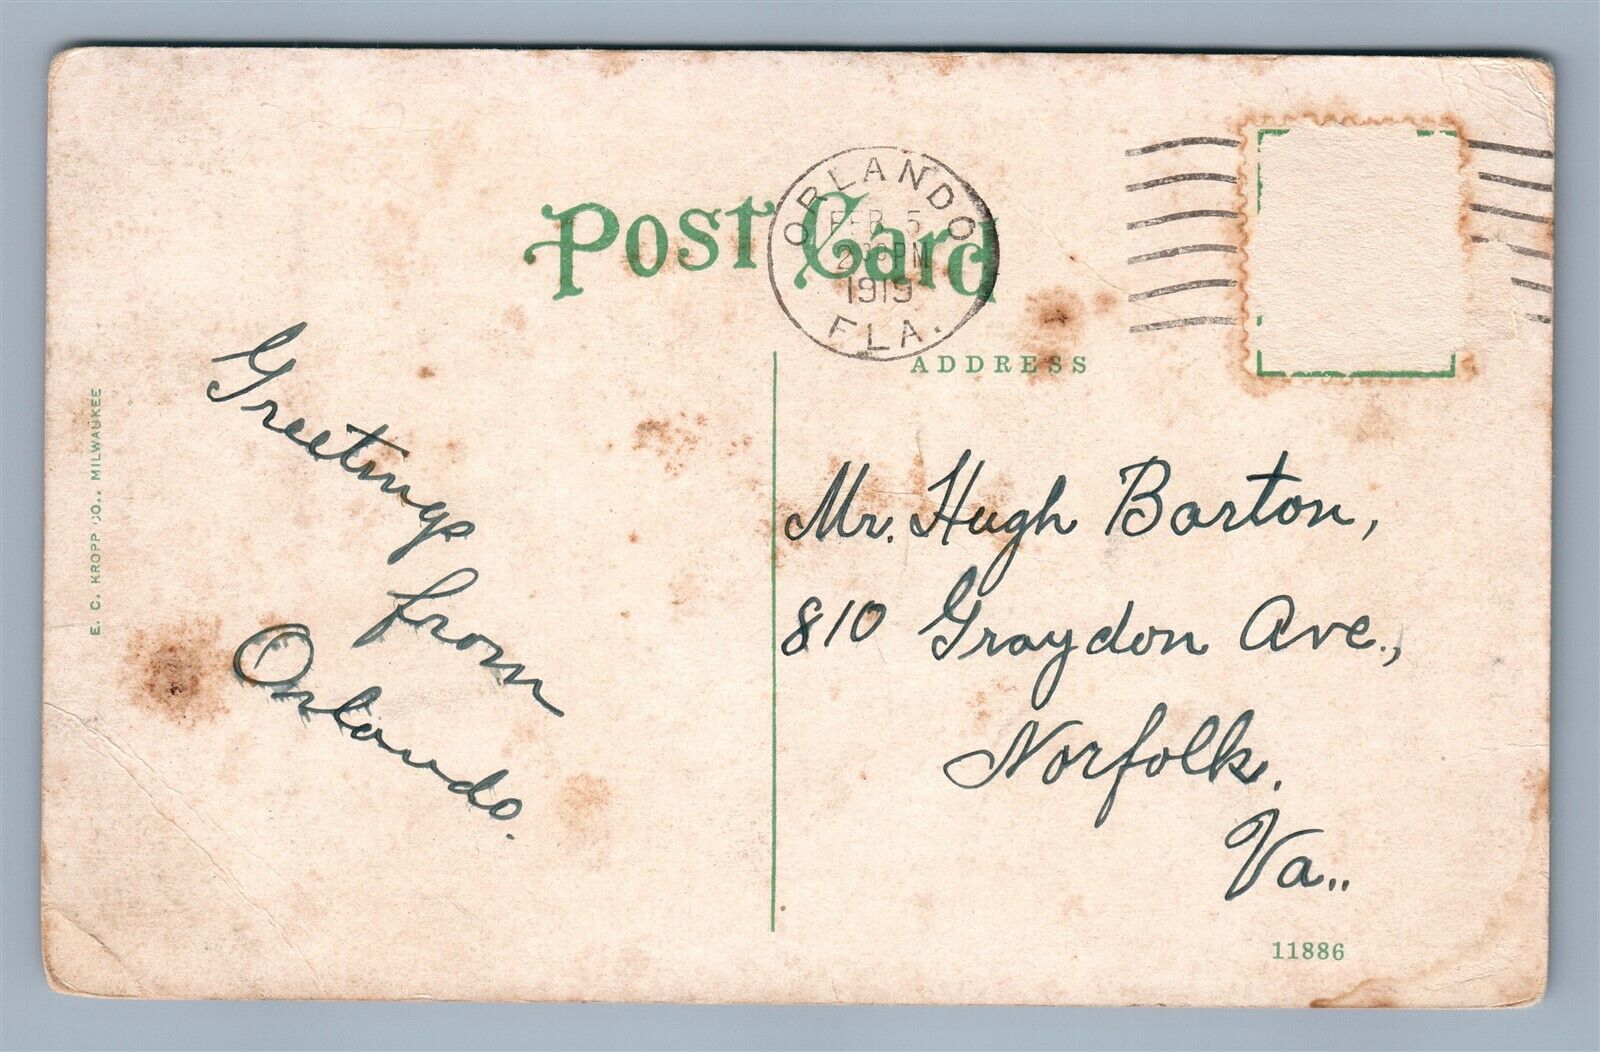 POST Card
ORLANDO
FEB 5
2 30 PM
1919
FLA.
ADDRESS
Greetings
from
Orlando.
Mr. Hugh Barton,
810 Graydon Ave.,
Norfolk.
Va..
11886
E. C. KROPP CO., MILWAUKEE